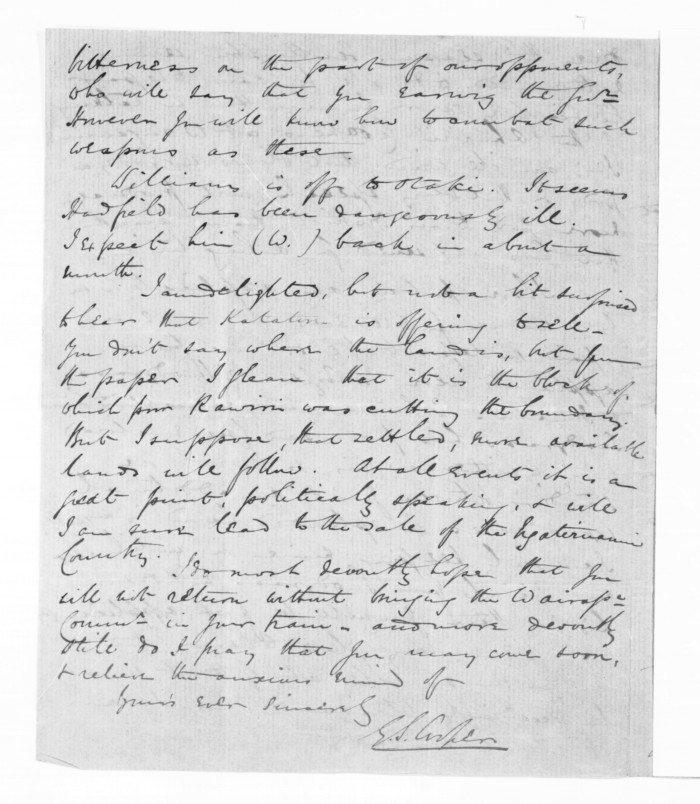 bitterness on the part of our opponents,
who will say that you earwig the Govr
However you will know how to combat such
weapons as these
Williams is off to Otaki. It seems
Hadfield has been dangerously ill.
I expect him (W.) back in about a
month.
I am delighted, but not a bit surprised
to hear that Katatore is offering to sell -
You don't say where the land is, but from
the paper I glean that it is the block of
which poor Rawiri was cutting the boundary.
But I suppose, that settled, more available
lands will follow. At all events it is a
great point, politically speaking, & will
I am sure lead to the sale of the Ngatiruanui
Country.
I do most devoutly hope that you
will not return without bringing the Wairapa
Commr in your train - and more devoutly
still do I pray that you may come soon,
& relieve the anxious mind of
Yours ever sincerely
G. S. Cooper